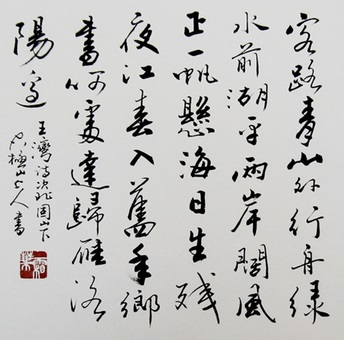 客路青山外行舟綠
水前湖平兩岸闊風
正一帆懸海日生殘
夜江春入舊年鄉
書何處達歸雁洛
陽邊
王灣詩次北固山下
山上人書